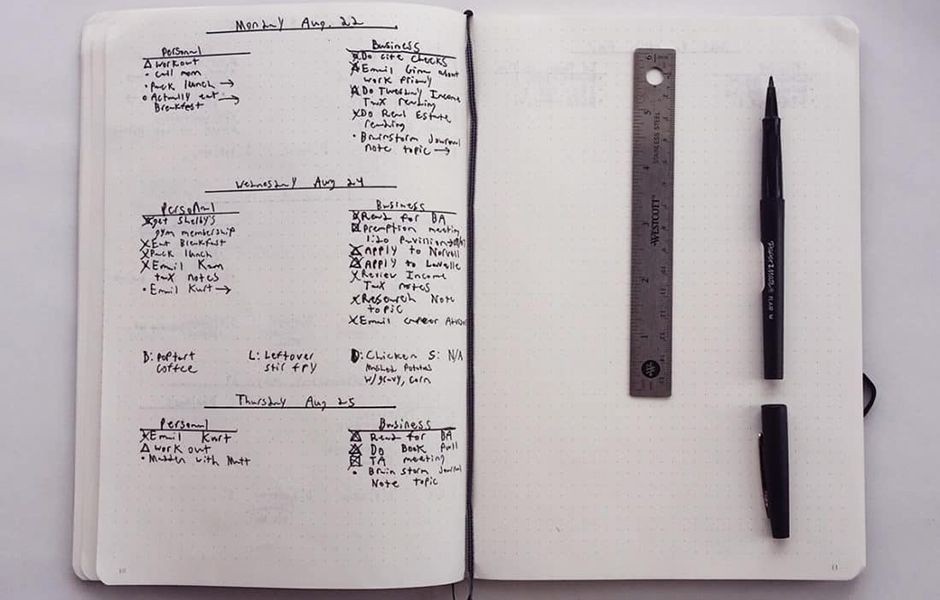 Monday Aug. 22
Personal
Workout
Call mom
Pack lunch →
Actually eat →
Breakfast
Business
Do cite checks
Email Gina about
work Friday
Do Tuesday Income
Tax reading
Do Real Estate
reading
Brainstorm Journal
note topic →
Wednesday Aug 24
Personal
get Shelby's
gym membership
Eat Breakfast
Pack lunch
Email Kam
tax notes
Email Kurt →
Business
Read for BA
meeting
1:20 Pavilion
Apply to Norvell
Apply to Lavelle
Review Income
Tax notes
Research Note
topic
Email career
D: Poptart
coffee
L: Leftover
stir fry
D: Chicken
Mashed Potatoes
w/gravy, corn
S: N/A
Thursday Aug 25
Personal
Email Kurt
work out
Madden with Matt
Business
Read for BA
Do Book Pull
TA meeting
Brainstorm Journal
Note topic
WESTCOTT
STAINLESS STEEL
6
5
4
3
2
1